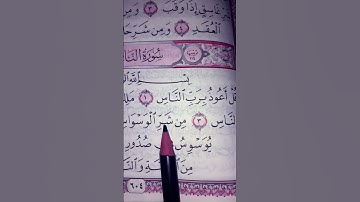 غَاسِقٍ إِذَا وَقَبَ ٣ وَمِن
الْعُقَدِ ٤ وَمِن شَرِّ حَا
سُورَةُ النَّا
بِسْمِ اللَّهِ
قُلْ أَعُوذُ بِرَبِّ النَّاسِ ١ مَلِ
النَّاسِ ٣ مِن شَرِّ الْوَسْوَا
يُوَسْوِسُ صُدُورِ
مِنَ وَالنَّا
٦٠٤